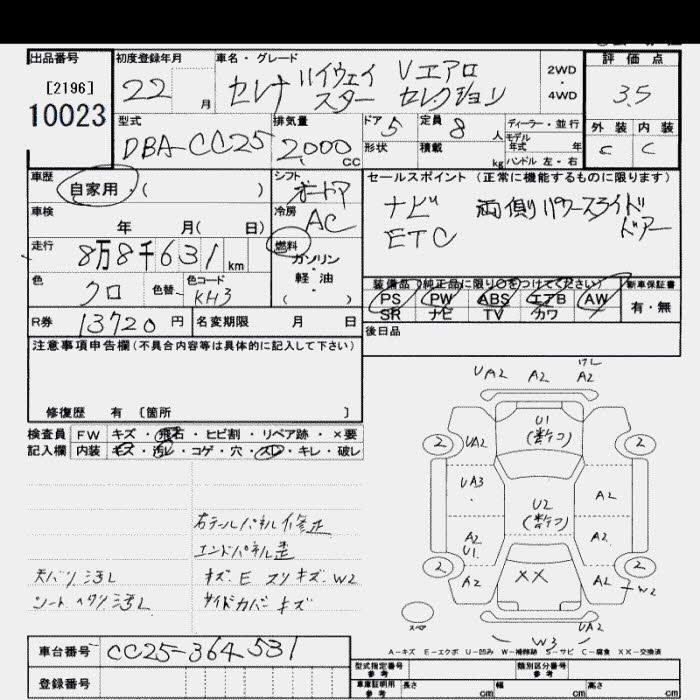 出品番号 初度登録年月 車名・グレード 評価点
[2196] 22 月 セレナ ハイウェイスター Vエアロセレクション 2WD ・ 4WD 3.5
10023
外装 内装
C C
型式 排気量 ドア 5 定員 8 人 ディーラー・並行
DBA-CC25 2000 CC 形状 積載 kg モデル年式 年
ハンドル 左・右
車歴 自家用・( ) シフト オートマ セールスポイント (正常に機能するものに限ります)
車検 年 月( 日) 冷房 AC ナビ 両側パワースライドドアー
ETC
走行 8万8千631 km 燃料 ガソリン・軽油 ( )
色 クロ 色替 色コード KH3
装備品(純正品に限り○をつけてください) 新車保証書
PS PW ABS エアB AW 有・無
SR ナビ TV カワ
R券 13720 円 名変期限 月 日 後日品
注意事項申告欄(不具合内容等は具体的に記入して下さい)
修復歴 有 〔箇所 〕
検査員 FW キズ・飛石・ヒビ割・リペア跡・×要
記入欄 内装 キズ・汚レ・コゲ・穴・スレ・キレ・破レ
右テールパネル修正
エンドパネル歪
天バリ汚レ キズ、E スリキズ、W2
シートヘタリ汚レ サイドカバーキズ
UA2 A2 A2
U1
2 UA2 2
UA3 U2 A2
A2 U1 A2
2 A2 XX A2 W2 2
スペア W3 UA2
A-キズ E-エクボ U-凹み W-補修跡 S-サビ C-腐食 XX-交換済
車台番号 CC25-364531
登録番号
型式指定番号 参考 類別区分番号 参考
車庫証明用 参考 長さ cm 幅 cm 高さ cm